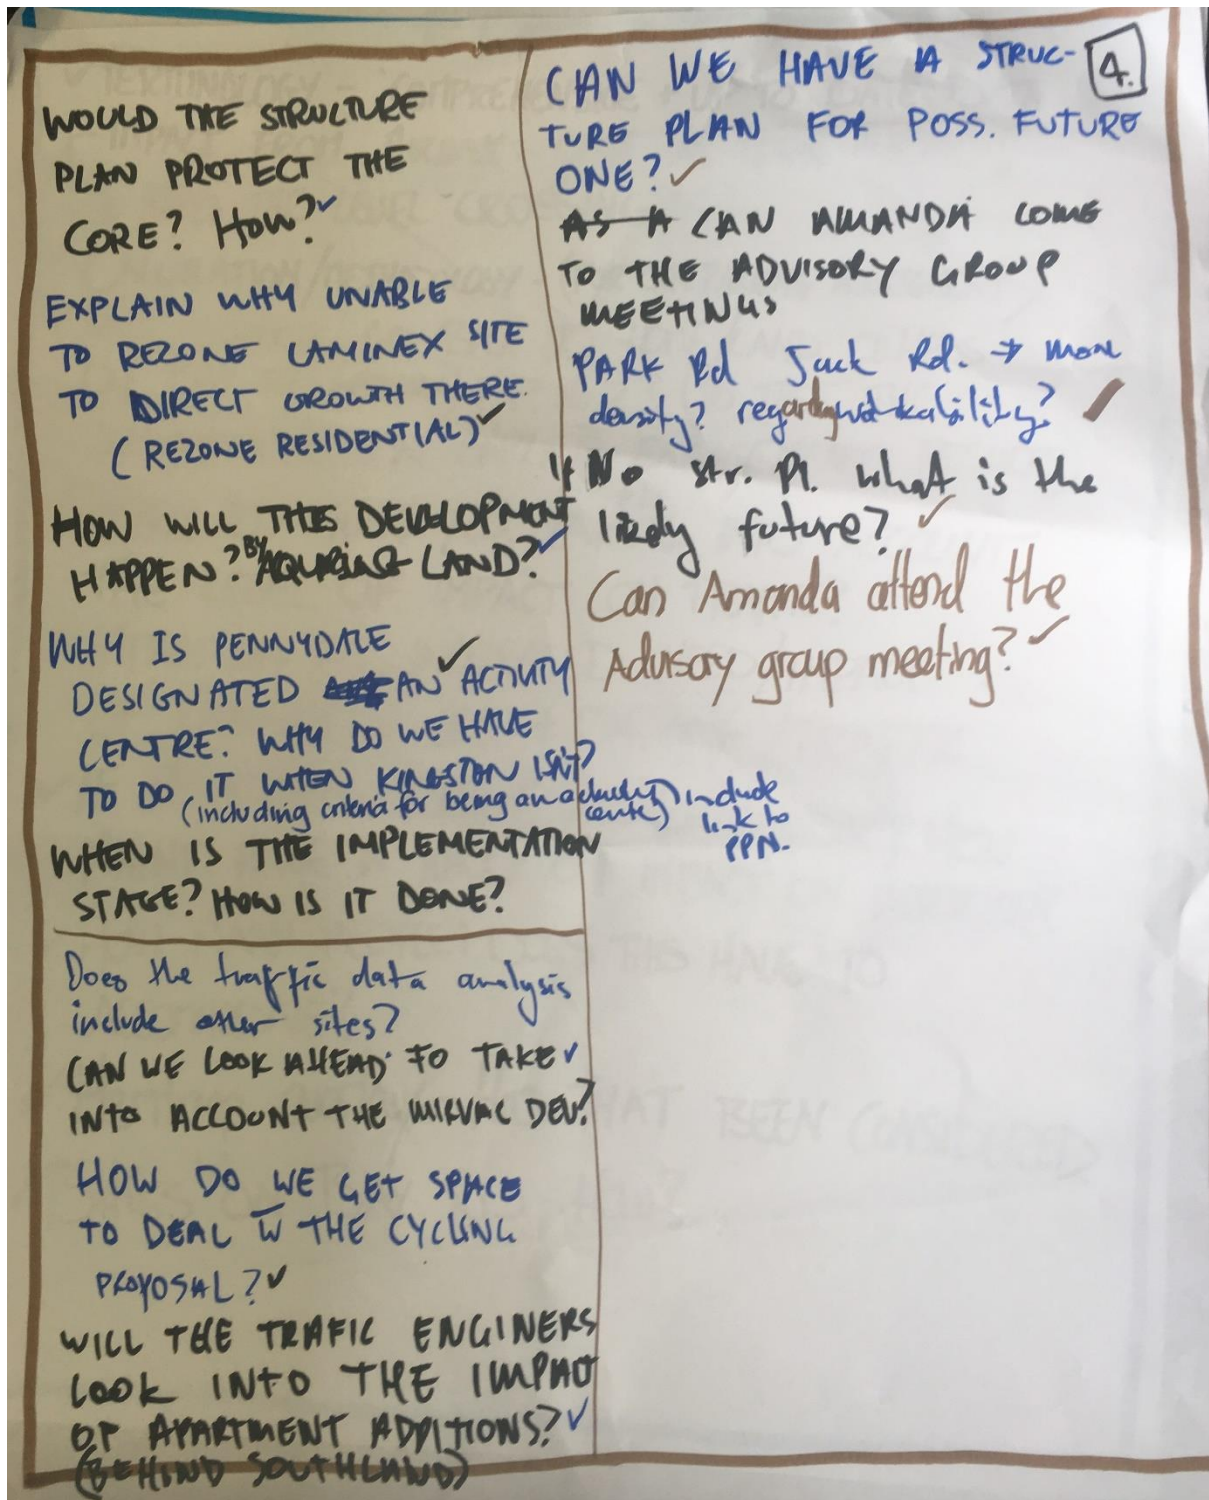 WOULD THE STRUCTURE
PLAN PROTECT THE
CORE? HOW?
EXPLAIN WHY UNABLE
TO REZONE LAMINEX SITE
TO DIRECT GROWTH THERE.
(REZONE RESIDENTIAL)
HOW WILL THIS DEVELOPMENT
HAPPEN? BY AQURING LAND?
WHY IS PENNYDALE
DESIGNATED AN ACTIVITY
CENTRE? WHY DO WE HAVE
TO DO IT WHEN KINGSTON ISN'T?
(including criteria for being an activity centre) include
link to
PPN.
WHEN IS THE IMPLEMENTATION
STAGE? HOW IS IT DONE?
Does the traffic data analysis
include other sites?
CAN WE LOOK AHEAD TO TAKE
INTO ACCOUNT THE MIRVAC DEV?
HOW DO WE GET SPACE
TO DEAL W THE CYCLING
PROPOSAL?
WILL THE TRAFIC ENGINERS
LOOK INTO THE IMPACT
OF APARTMENT ADDITIONS?
(BEHIND SOUTHLAND)
4.
CAN WE HAVE A STRUC-
TURE PLAN FOR POSS. FUTURE
ONE?
AS A CAN AMANDA COME
TO THE ADVISORY GROUP
MEETINGS
PARK Rd Jack Rd. → more
density? regarding walkability?
If No str. Pl. what is the
likely future?
Can Amanda attend the
Advisory group meeting?